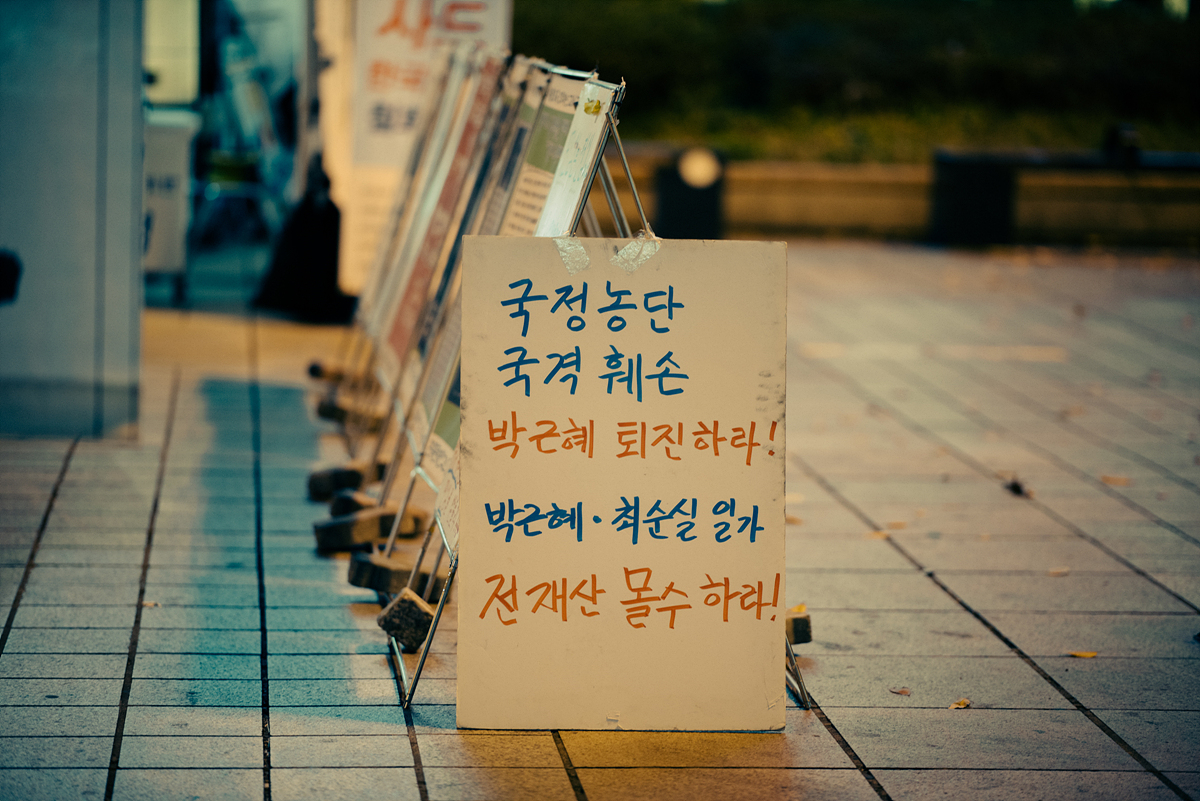 사드
한국
국정농단
국격 훼손
박근혜 퇴진하라!
박근혜·최순실 일가
전재산 몰수하라!